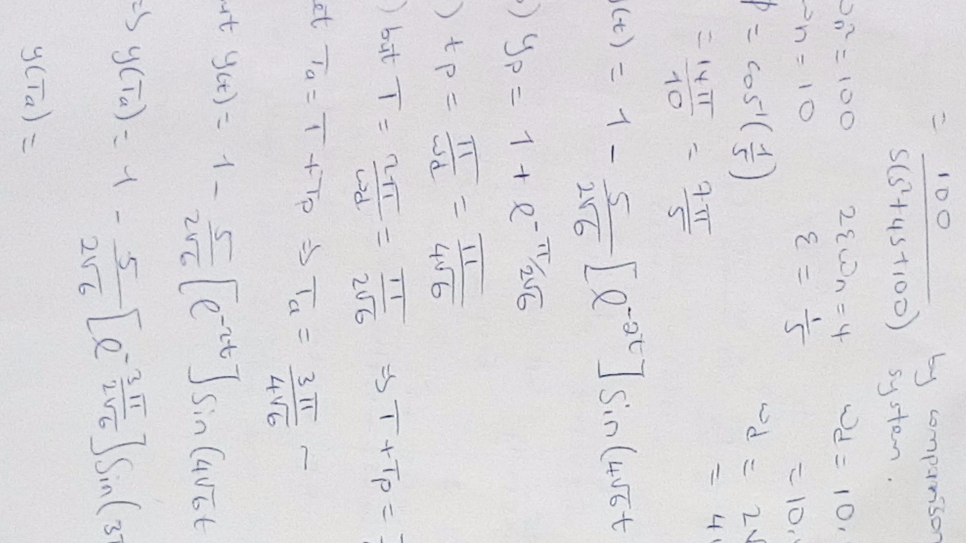 = 100 / S(S²+4S+100) by comparisson system.
ωn² = 100 2ξωn = 4 ωd = 10.
ωn = 10 ξ = 1/5 = 10.
φ = cos⁻¹(1/5) ωd = 2√
= 14π/10 = 7π/5 = 4
y(t) = 1 - 5/2√6 [e^-2t] Sin(4√6t
) yp = 1 + e^-π/2√6
) tp = π/ωd = π/4√6
) but T = 2π/ωd = π/2√6 ⇒ T + Tp =
at Ta = T + Tp ⇒ Ta = 3π/4√6 ~
y(t) = 1 - 5/2√6 [e^-2t] Sin(4√6t
⇒ y(Ta) = 1 - 5/2√6 [e^-3π/2√6] Sin(3π
y(Ta) =